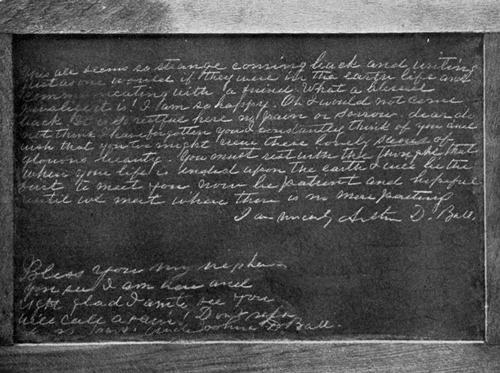 This all seems so strange coming back and writing
just as one would if they were in the earth life and
communicating with a friend. What a blessed
privilege it is! I am so happy. Oh I would not come
back. It is so restful here no pain or sorrow. dear do
not think I have forgotten you constantly think of you and
wish that you too might view these lovely scenes of
glorious beauty. You must rest with the thought that
when your life is ended upon the earth I will be the
first to meet you. now be patient and hopeful
until we meet where there is no more parting
I am sincerely D. Ball.
Bless you my nephew
you see I am here and
glad I am to see you
will call again! Don't
Uncle Ball.